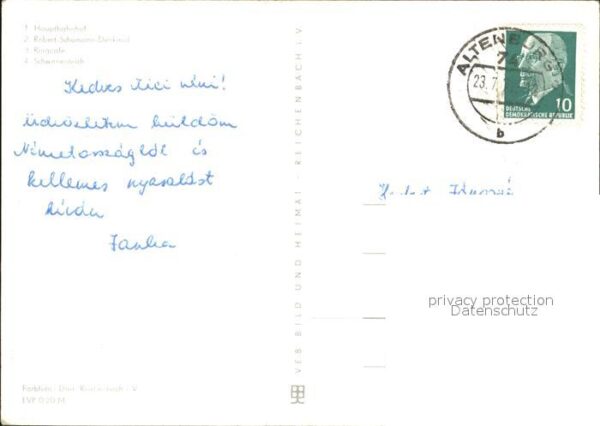 1. Hauptbahnhof
2. Robert-Schumann-Denkmal
3. Ringcafe
4. Schwanenteich
Kedves Cici néni!
üdvözletem küldöm
Németországból és
kellemes nyaralást
kíván
Janka
VEB BILD UND HEIMAT · REICHENBACH i. V.
ALTENBURG
74
23.7.
b
10
DEUTSCHE
DEMOKRATISCHE REPUBLIK
privacy protection
Datenschutz
Farbfoto: